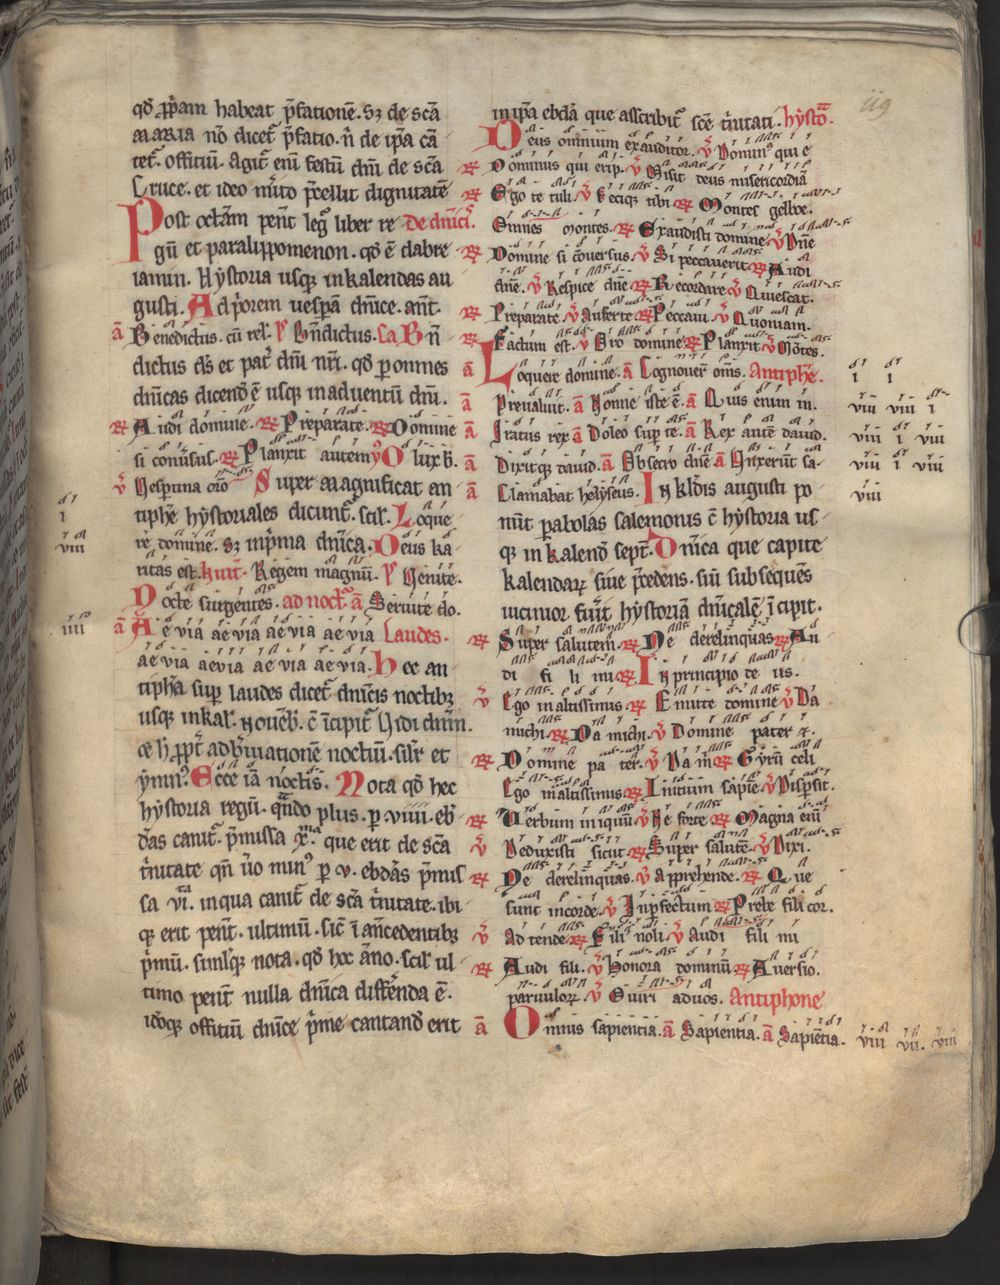 qd̄ ꝓp̄am habeat p̄fationē. Sꝫ de scā
maria nō dicet᷑ p̄fatio. n̄ de ip̄a cā
tet᷑ offitiū. Agit᷑ enī festū dn̄i de scā
Cruce. et ideo m̄ito p̄cellit dignitatē
Post octām pent̄ leg᷑ liber re de dn̄icis.
gū et paralippomenon. qd̄ ē dabre
iamin. Hystoria usqꝫ in kalendas au
gusti. Ad p̄orem uesꝑā dn̄ice. ant̄.
ā Benedictus. cū rel. p̄ Bn̄dictus. La Bn̄
dictus dn̄s et pat᷑ dn̄i nr̄i. qd̄ ꝑ omnes
dn̄icas dicend̄ ē usqꝫ in aduentū dn̄i.
℞ Audi domine. ℞ Preparate. ℞ Domine
si conūsus. ℞ Planxit autem. y᷒ O lux b̄.
v̄ Vespertina orō Super magnificat an
tiphē hystoriales dicunt᷑. scil. Loque
i
viii
re domine. Sꝫ in p̄ma dn̄ica. Deus ka
ritas est. Inuit̄. Regem magnū. p̄ Venite.
Nocte surgentes. ad noct᷑. ā Seruite do.
iiii
ā Aeuia aeuia aeuia aeuia Laudes.
aeuia aeuia aeuia aeuia. Hec an
tipha sup̄ laudes dicet᷑ dn̄icis noctibꝫ
usqꝫ in kal. nouēb̄.
ymn᷒. Ecce iā noctis. Nota qd̄ hec
hystoria regū. qn̄do plus. ꝑ viiii. eb̄
d̄as canit᷑. p̄missa xiᵐᵃ que erit de scā
t̄nitate qn̄ ū̄o min᷒ ꝑ v. ebdās p̄mis
sa viᵗᵃ. in qua canit᷑ de scā t̄nitate. ibi
qꝫ erit pent̄. ultimū. sic̄ ī an̄cedentibꝫ
p̄mū. Similit̄qꝫ nota. qd̄ hoc āno. scil. ul
timo pent̄ nulla dn̄ica differēnda ē.
idōqꝫ offitiū dn̄ice p̄me cantand̄ erit
in ip̄a ebda que asscribit᷑ scē t̄nitati. hystō.
Deus omnium exauditor. v̄ Domin᷒ qui e
℞ Dominus qui erip. v̄ Misit deus misericordiā
℞ Ego te tuli v̄ Fecique tibi ℞ Montes gelboe.
Omnes montes. ℞ Exaudisti domine v̄ Dn̄e
℞ Domine si cōuersus v̄ Si peccauerit ℞ Audi
dn̄e. v̄ Respice dn̄e ℞ Recordare v̄ Quiescat.
℞ Preparate v̄ Auferte ℞ Peccaui. v̄ Quoniam.
℞ Factum est. v̄ Oro domine ℞ Planxit v̄ Mōtes.
ā Loquere domine. ā Cognouer̄ om̄s. Antiphē.
i i
ā Preualuit. ā Nonne iste ē. ā Quis enim in.
viii viii i
ā Iratus rex ā Doleo suꝑ te. ā Rex autē dauid.
viii i viii
ā Dixitqꝫ dauid. ā Obsecro dn̄e ā Unxerūt sa
viii i viii
ā Clamabat helyseus. In kl̄dis augusti po
viii
nūt᷑ parbolas salemonis c̄ hystoria us
qꝫ in kalend̄ sept̄. Dn̄ica que capite
kalendaꝝ siue p̄cedens. siū subsequēs
uicinior fūit hystoriā dn̄icalē īcipit.
℞ Super salutem. ℞ Ne derelinquas ℞ Au
di fi li mi ℞ In principio de us.
v̄ Ego in altissimis ℞ Emitte domine v̄ Da
michi. ℞ Da michi v̄ Domine pater ⁊.
℞ Domine pa ter. v̄ Da m̄ ℞ Gyrū celi
Ego in altissimis ℞ Initium sapīe v̄ Disꝑsit.
℞ Verbum iniquū v̄ Ne forte ℞ Magna enī
v̄ Deduxisti sicut ℞ Super salutē. v̄ Dixi.
℞ Ne derelinquas. v̄ Apprehende. ℞ Que
sunt in corde. v̄ Inꝑfectum ℞ Prebe fili cor.
v̄ Adtende ℞ Fili noli v̄ Audi fili mi
℞ Audi fili. v̄ Honora dominū ℞ Auersio.
paruuloꝝ v̄ O uiri ad uos. Antiphone
ā Omnis sapientia. ā Sapientia. ā Sapiētia.
viii vii. viii